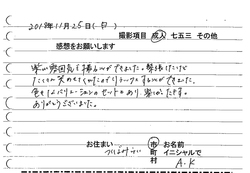 2018年11月25日(日)
撮影項目 成人 七五三 その他
感想をお願いします
楽しい雰囲気で撮ることができました。緊張したけど
たくさん笑わせてくれたのでリラックスすることができました。
色々なバリエーションのセットもあり、楽しかったです。
ありがとうございました。
お住まい 市 町 村 お名前 イニシャルで
つくばみらい
A.K